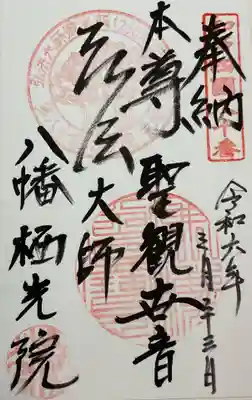 奉納
令和六年
三月二十三日
本尊 聖観世音
弘法大師
八幡栖光院